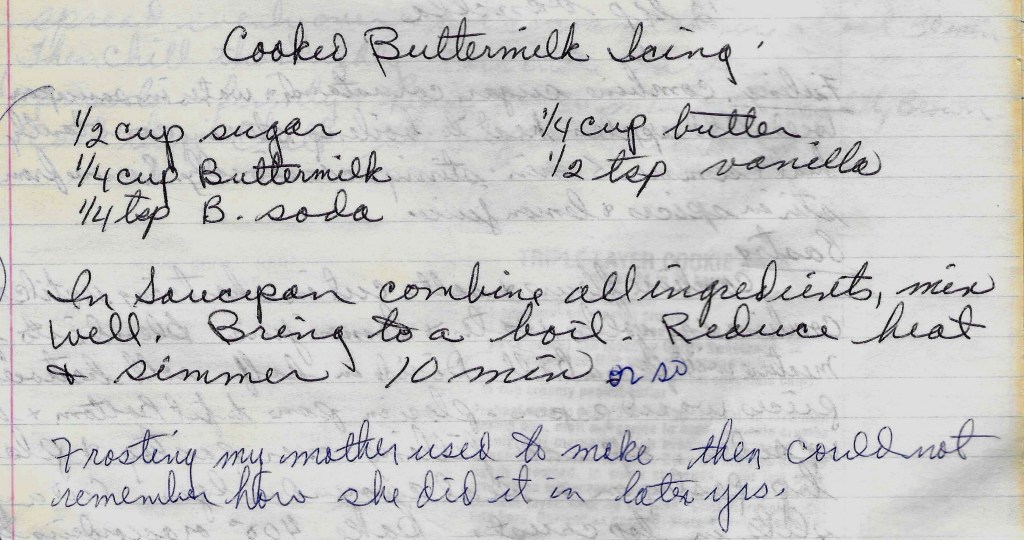 Cooked Buttermilk Icing
1/2 cup sugar 1/4 cup butter
1/4 cup Buttermilk 1/2 tsp vanilla
1/4 tsp B. soda
In Saucepan combine all ingredients, mix
well. Bring to a boil. Reduce heat
& simmer 10 min or so
Frosting my mother used to make then could not
remember how she did it in later yrs.